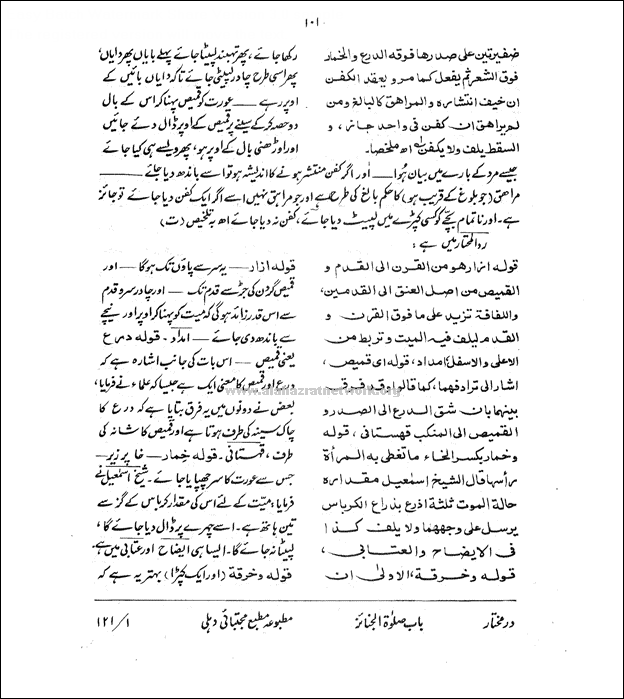 ۱۰۱
ضفیرتین علی صدرھا فوقہ الدرع والخمار
فوق الشعر ثم یفعل کما مر و یعقد الکفن
ان خیف انتشارہ والمراھق کالبالغ ومن
لم یراھق ان کفن فی واحد جاز، و
السقط یلف ولا یکفن اھ ملخصا۔
رکھا جائے، پھر تہبند لپیٹا جائے پہلے بایاں پھر دایاں،
پھر اسی طرح چادر لپیٹی جائے تاکہ دایاں بائیں کے
اوپر رہے — عورت کو قمیص پہنا کر اس کے بال
دو حصہ کرکے سینے پر قمیص کے اوپر ڈال دے جائیں
اور اوڑھنی بال کے اوپر ہو، پھر ویسے ہی کیا جائے
جیسے مرد کے بارے میں بیان ہُوا — اور اگر کفن منتشر ہونے کا اندیشہ ہو تو اسے باندھ دیا جائے —
مراھق (جو بلوغ کے قریب ہو) کا حکم بالغ کی طرح ہے اور جو مراہق نہیں اسے اگر ایک کفن دیا جائے تو جائز
ہے۔ اور ناتمام بچّے کو کسی کپڑے میں لپیٹ دیا جائے، کفن نہ دیا جائے اھ بہ تلخیص (ت)
ردالمحتار میں ہے:
قولہ ازار ھو من القرن الی القدم و
القمیص من اصل العنق الی القدمین،
واللفافۃ تزید علی ما فوق القرن و
القدم لیلف فیہ المیت و تربط من
الاعلی والاسفل امداد، قولہ ای قمیص،
اشار الی ترادفھما، کما قالوا وقد فرق
بینھما بان شق الدرع الی الصدر و
القمیص الی المنکب قھستانی، قولہ
وخمار بکسر الخاء ما تغطی بہ المرأۃ
رأسھا قال الشیخ اسمٰعیل مقدارہ
حالۃ الموت ثلثۃ اذرع بذراع الکرباس
یرسل علی وجھھا ولا یلف کذا
فی الایضاح والعتابی،
قولہ وخرقۃ، الاولی ان
قولہ ازار — یہ سر سے پاؤں تک ہوگا — اور
قمیص گردن کی جڑ سے قدم تک — اور چادر سر و قدم
سے اس قدر زائد ہوگی کہ میّت کو پہنا کر اوپر اور نیچے
سے باندھ دی جائے — امداد۔ قولہ درع
یعنی قمیص — اس بات کی جانب اشارہ ہے کہ
درع اور قمیص کا معنی ایک ہے جیسا کہ علماء نے فرمایا،
بعض نے دونوں میں یہ فرق بتایا ہے کہ درع کا
چاک سینہ کی طرف ہوتا ہے اور قمیص کا شانہ کی
طرف، قہستانی۔ قولہ خمار۔ خا پر زیر —
جس سے عورت کا سر چھپایا جائے۔ شیخ اسمٰعیل نے
فرمایا، میّت کے لئے اس کی مقدار کرباس کے گز سے
تین ہاتھ ہے۔ اسے چہرے پر ڈال دیا جائے گا،
لپیٹا نہ جائے گا۔ ایسا ہی ایضاح اور عتابی میں ہے۔
قولہ وخرقۃ (اور ایک کپڑا) بہتر یہ ہے کہ
www.alahazratnetwork.org
درمختار باب صلوٰۃ الجنائز مطبوعہ مطبع مجتبائی دہلی ۱/۱۲۱